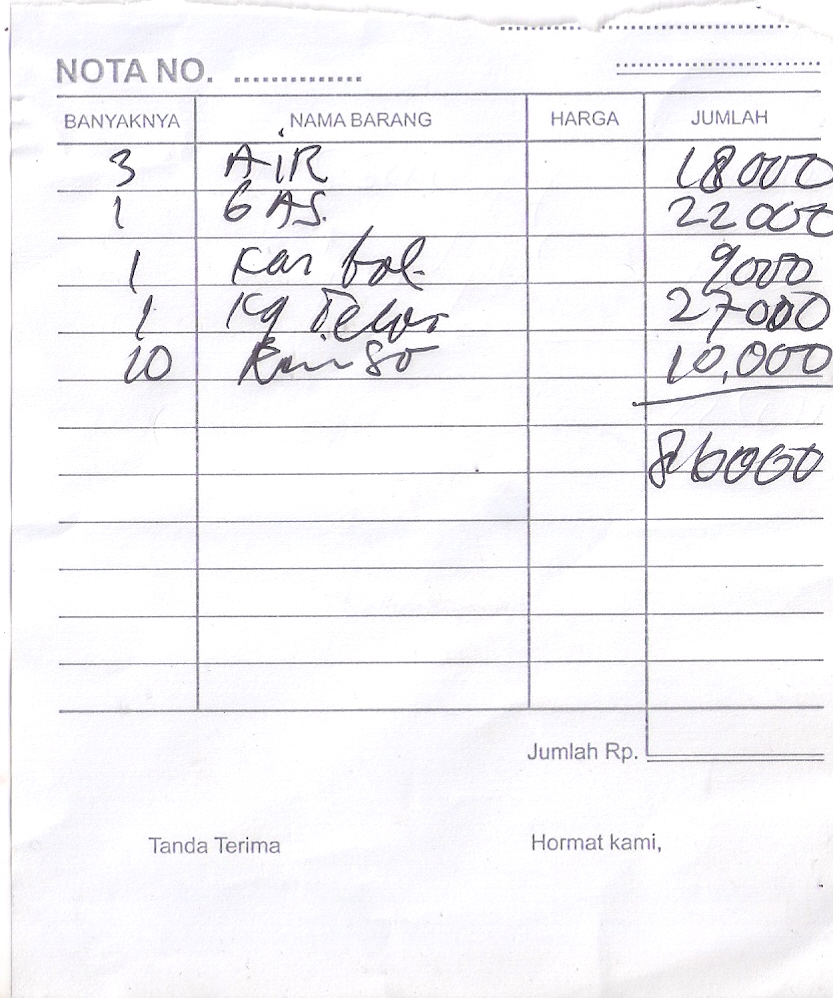 NOTA NO. ..............
BANYAKNYA NAMA BARANG HARGA JUMLAH
3 AIR 18000
1 GAS. 22000
1 Kar bol. 9000
1 Kg Telor 27000
10 Rinso 10,000
86000
Jumlah Rp.
Tanda Terima Hormat kami,